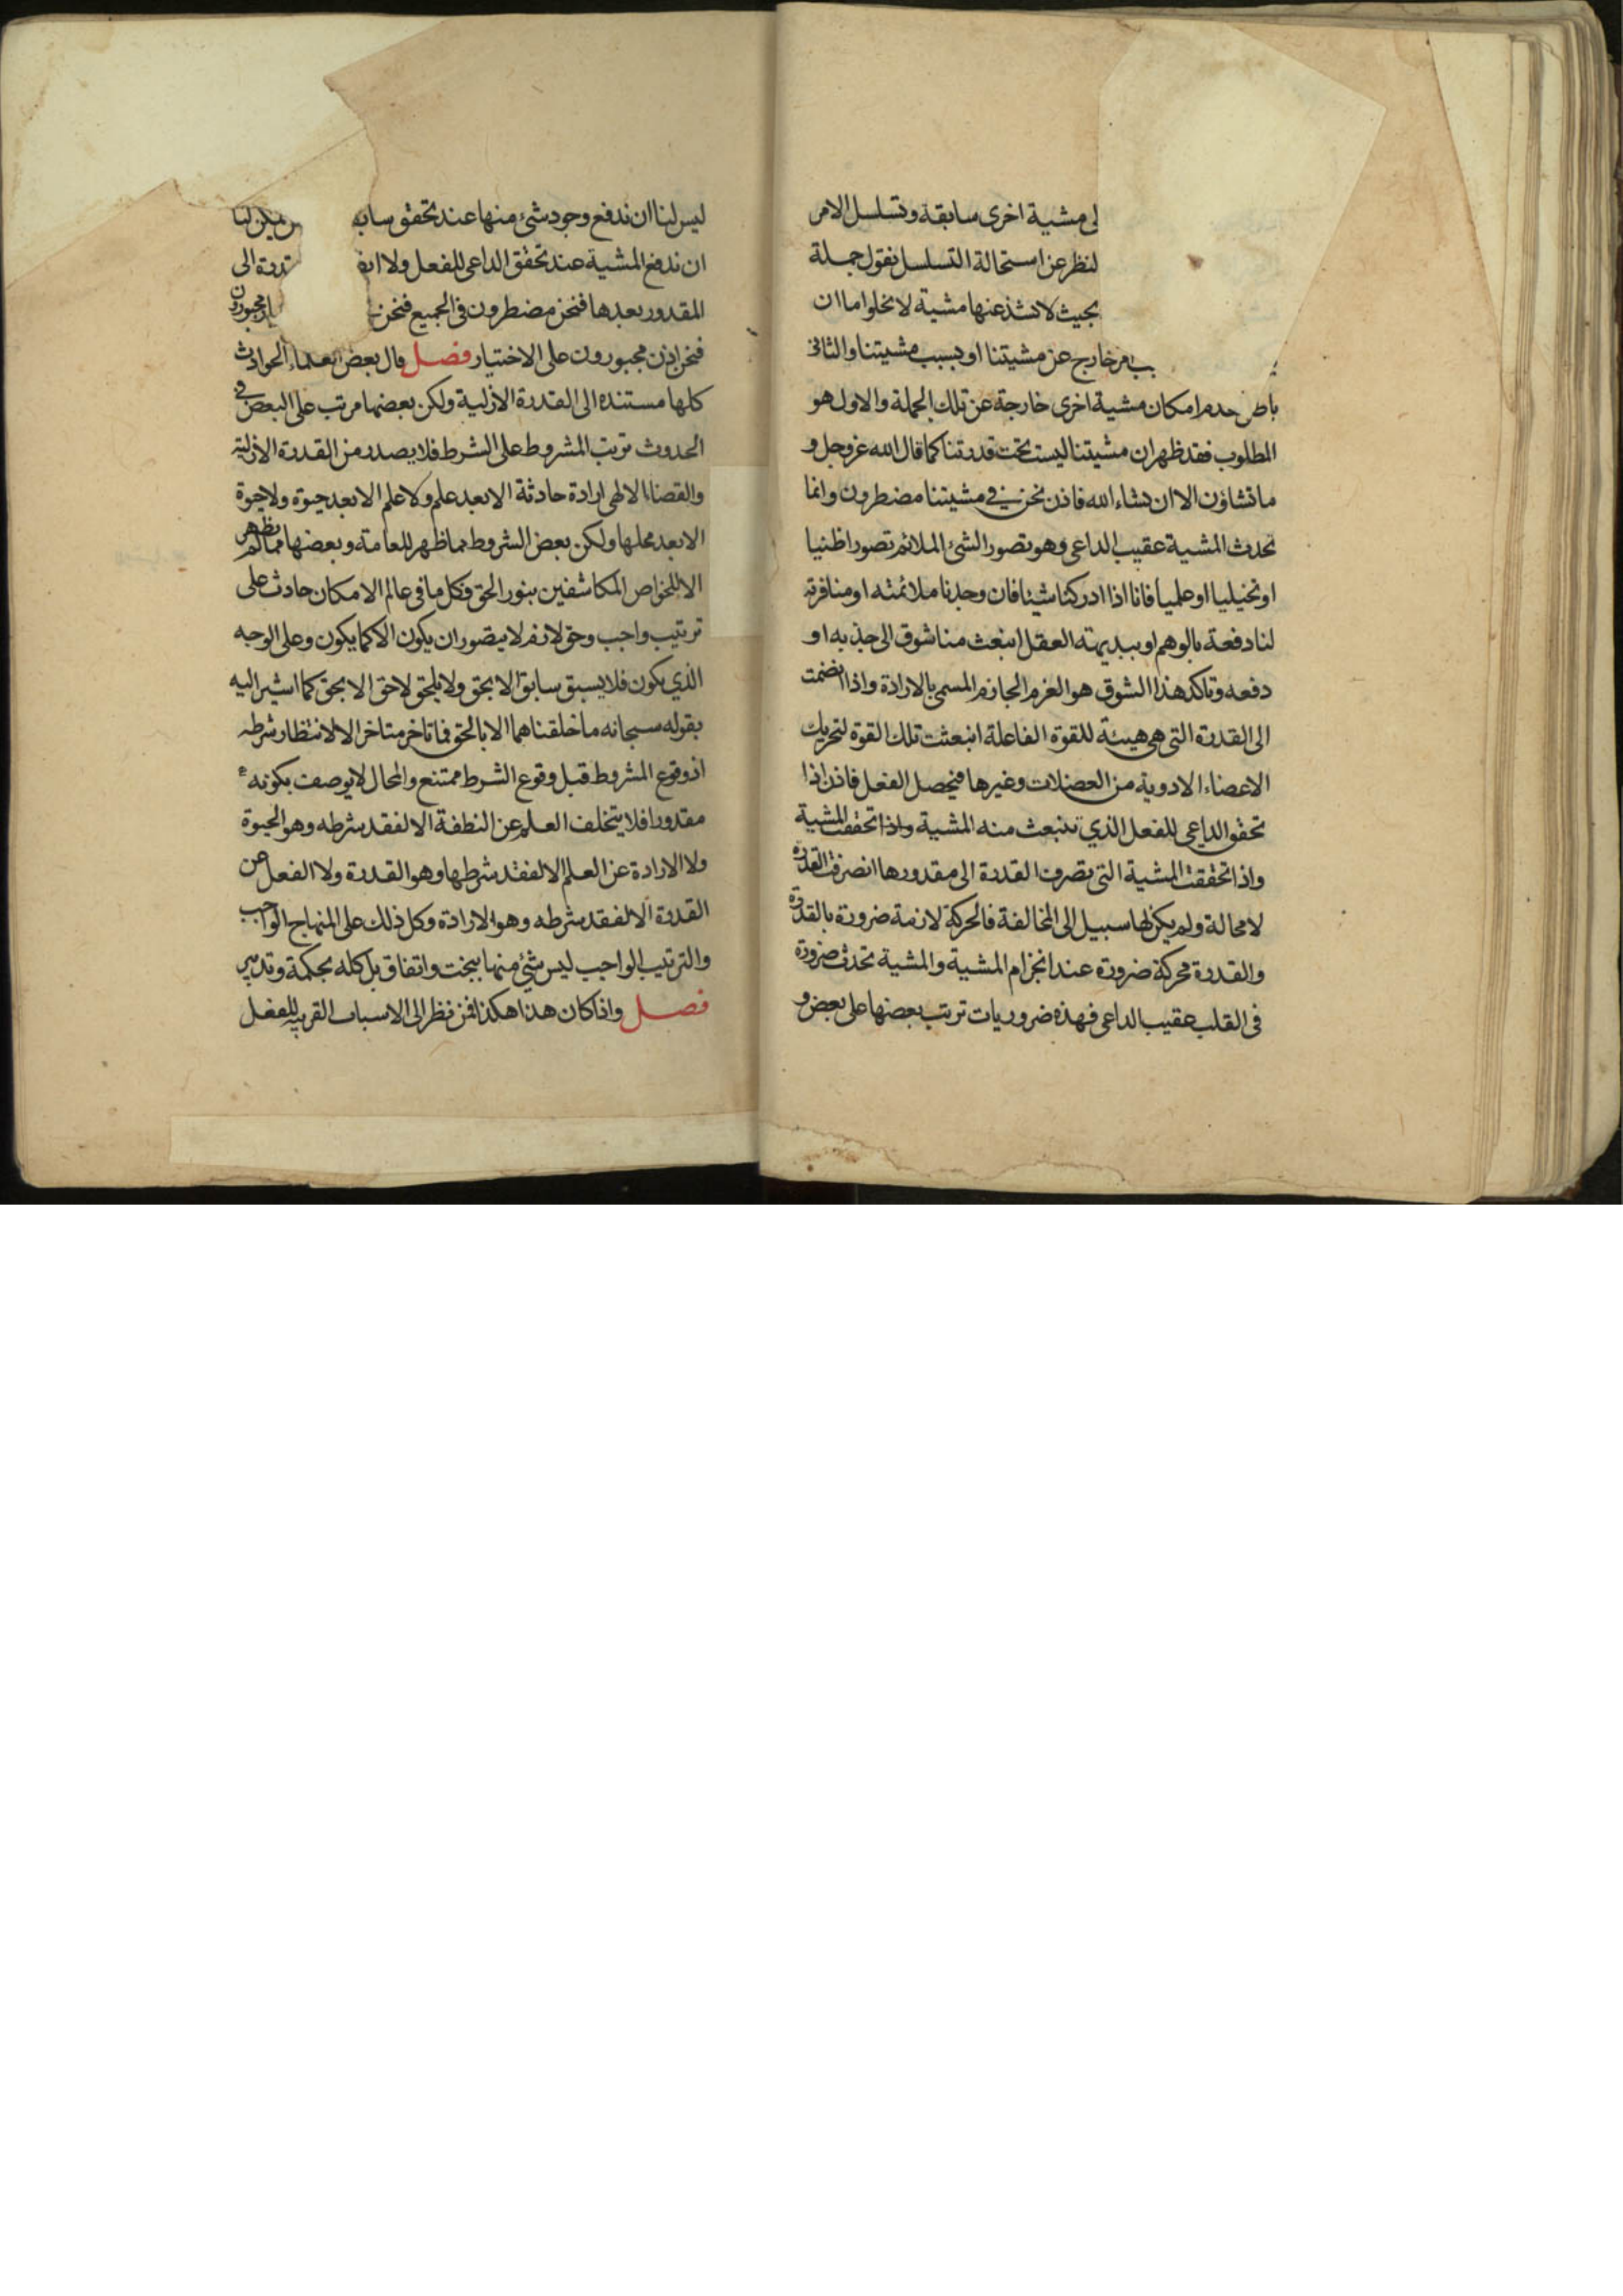 لى مشية اخرى سابقة وتسلسل الامر
لنظر عن استحالة التسلسل نقول جملة
بحيث لا تشذ عنها مشية لا يخلوا ما ان
بامر خارج عن مشيتنا او بسبب مشيتنا والثانى
امكان مشية اخرى خارجة عن تلك الجملة والاول هو
المطلوب فقد ظهر ان مشيتنا ليست تحت قدرتنا كما قال الله عزوجل و
ما تشاؤن الا ان يشاء الله فاذن نحن فى مشيتنا مضطرون وانما
تحدث المشية عقيب الداعى وهو تصور الشئ الملائم تصورا ظنيا
او تخيليا او علميا فانا اذا ادركنا شيئا فان وجدنا ملائمته او منافرته
لنا دفعة بالوهم او ببديهته العقل انبعث منا شوق الى جذبه او
دفعه وتاكد هذا الشوق هو العزم الجازم المسمى بالارادة واذا انضمت
الى القدرة التى هى هيئة للقوة الفاعلة انبعثت تلك القوة لتحريك
الاعضاء الادوية من العضلات وغيرها فيحصل الفعل فاذن اذا
تحقق الداعى للفعل الذي تنبعث منه المشية واذا تحققت المشية
واذا تحققت المشية التى تصرف القدرة الى مقدورها انصرفت القدرة
لا محالة ولم يكن لها سبيل الى المخالفة فالحركة لازمة ضرورة بالقدرة
والقدرة محركة ضرورة عند انجزام المشية والمشية تحدث ضرورة
فى القلب عقيب الداعى فهذه ضروريات ترتب بعضها على بعض و
ليس لنا ان ندفع وجود شئ منها عند تحقق يمكن لنا
ان ندفع المشية عند تحقق الداعى للفعل ولا الى
المقدور بعدها فنحن مضطرون فى الجميع فنحن مجبورون
فنحن اذن مجبورون على الاختيار فصل قال بعض العلماء الحوادث
كلها مستنده الى القدرة الازلية ولكن بعضها مرتب على البعض فى
الحدوث ترتب المشروط على الشرط فلا يصدر من القدرة الازلية
والقضاء الالهى ارادة حادثة الا بعد علم ولا علم الا بعد حيوة ولا حيوة
الا بعد محلها ولكن بعض الشروط مما ظهر للعامة وبعضها مما لم يظهر
الا للخواص المكاشفين بنور الحق فكل ما فى عالم الامكان حادث على
ترتيب واجب وحق لازم لا يتصور ان يكون الا كما يكون وعلى الوجه
الذي يكون فلا يسبق سابق الا بحق ولا يلحق لاحق الا بحق كما اشير اليه
بقوله سبحانه ما خلقناهما الا بالحق فما تاخر متاخر الا لانتظار شرطه
اذ وقوع المشروط قبل وقوع الشرط ممتنع والمحال لا يوصف بكونه
مقدورا فلا يتخلف العلم عن النطفة الا لفقد شرطه وهو الحيوة
ولا الارادة عن العلم الا لفقد شرطها وهو القدرة ولا الفعل عن
القدرة الا لفقد شرطه وهو الارادة وكل ذلك على المنهاج الواجب
والترتيب الواجب ليس شئ منها ببخت واتفاق بل كله بحكمة وتدبير
فصل واذا كان هذا هكذا فمن نظر الى الاسباب القريبه للفعل